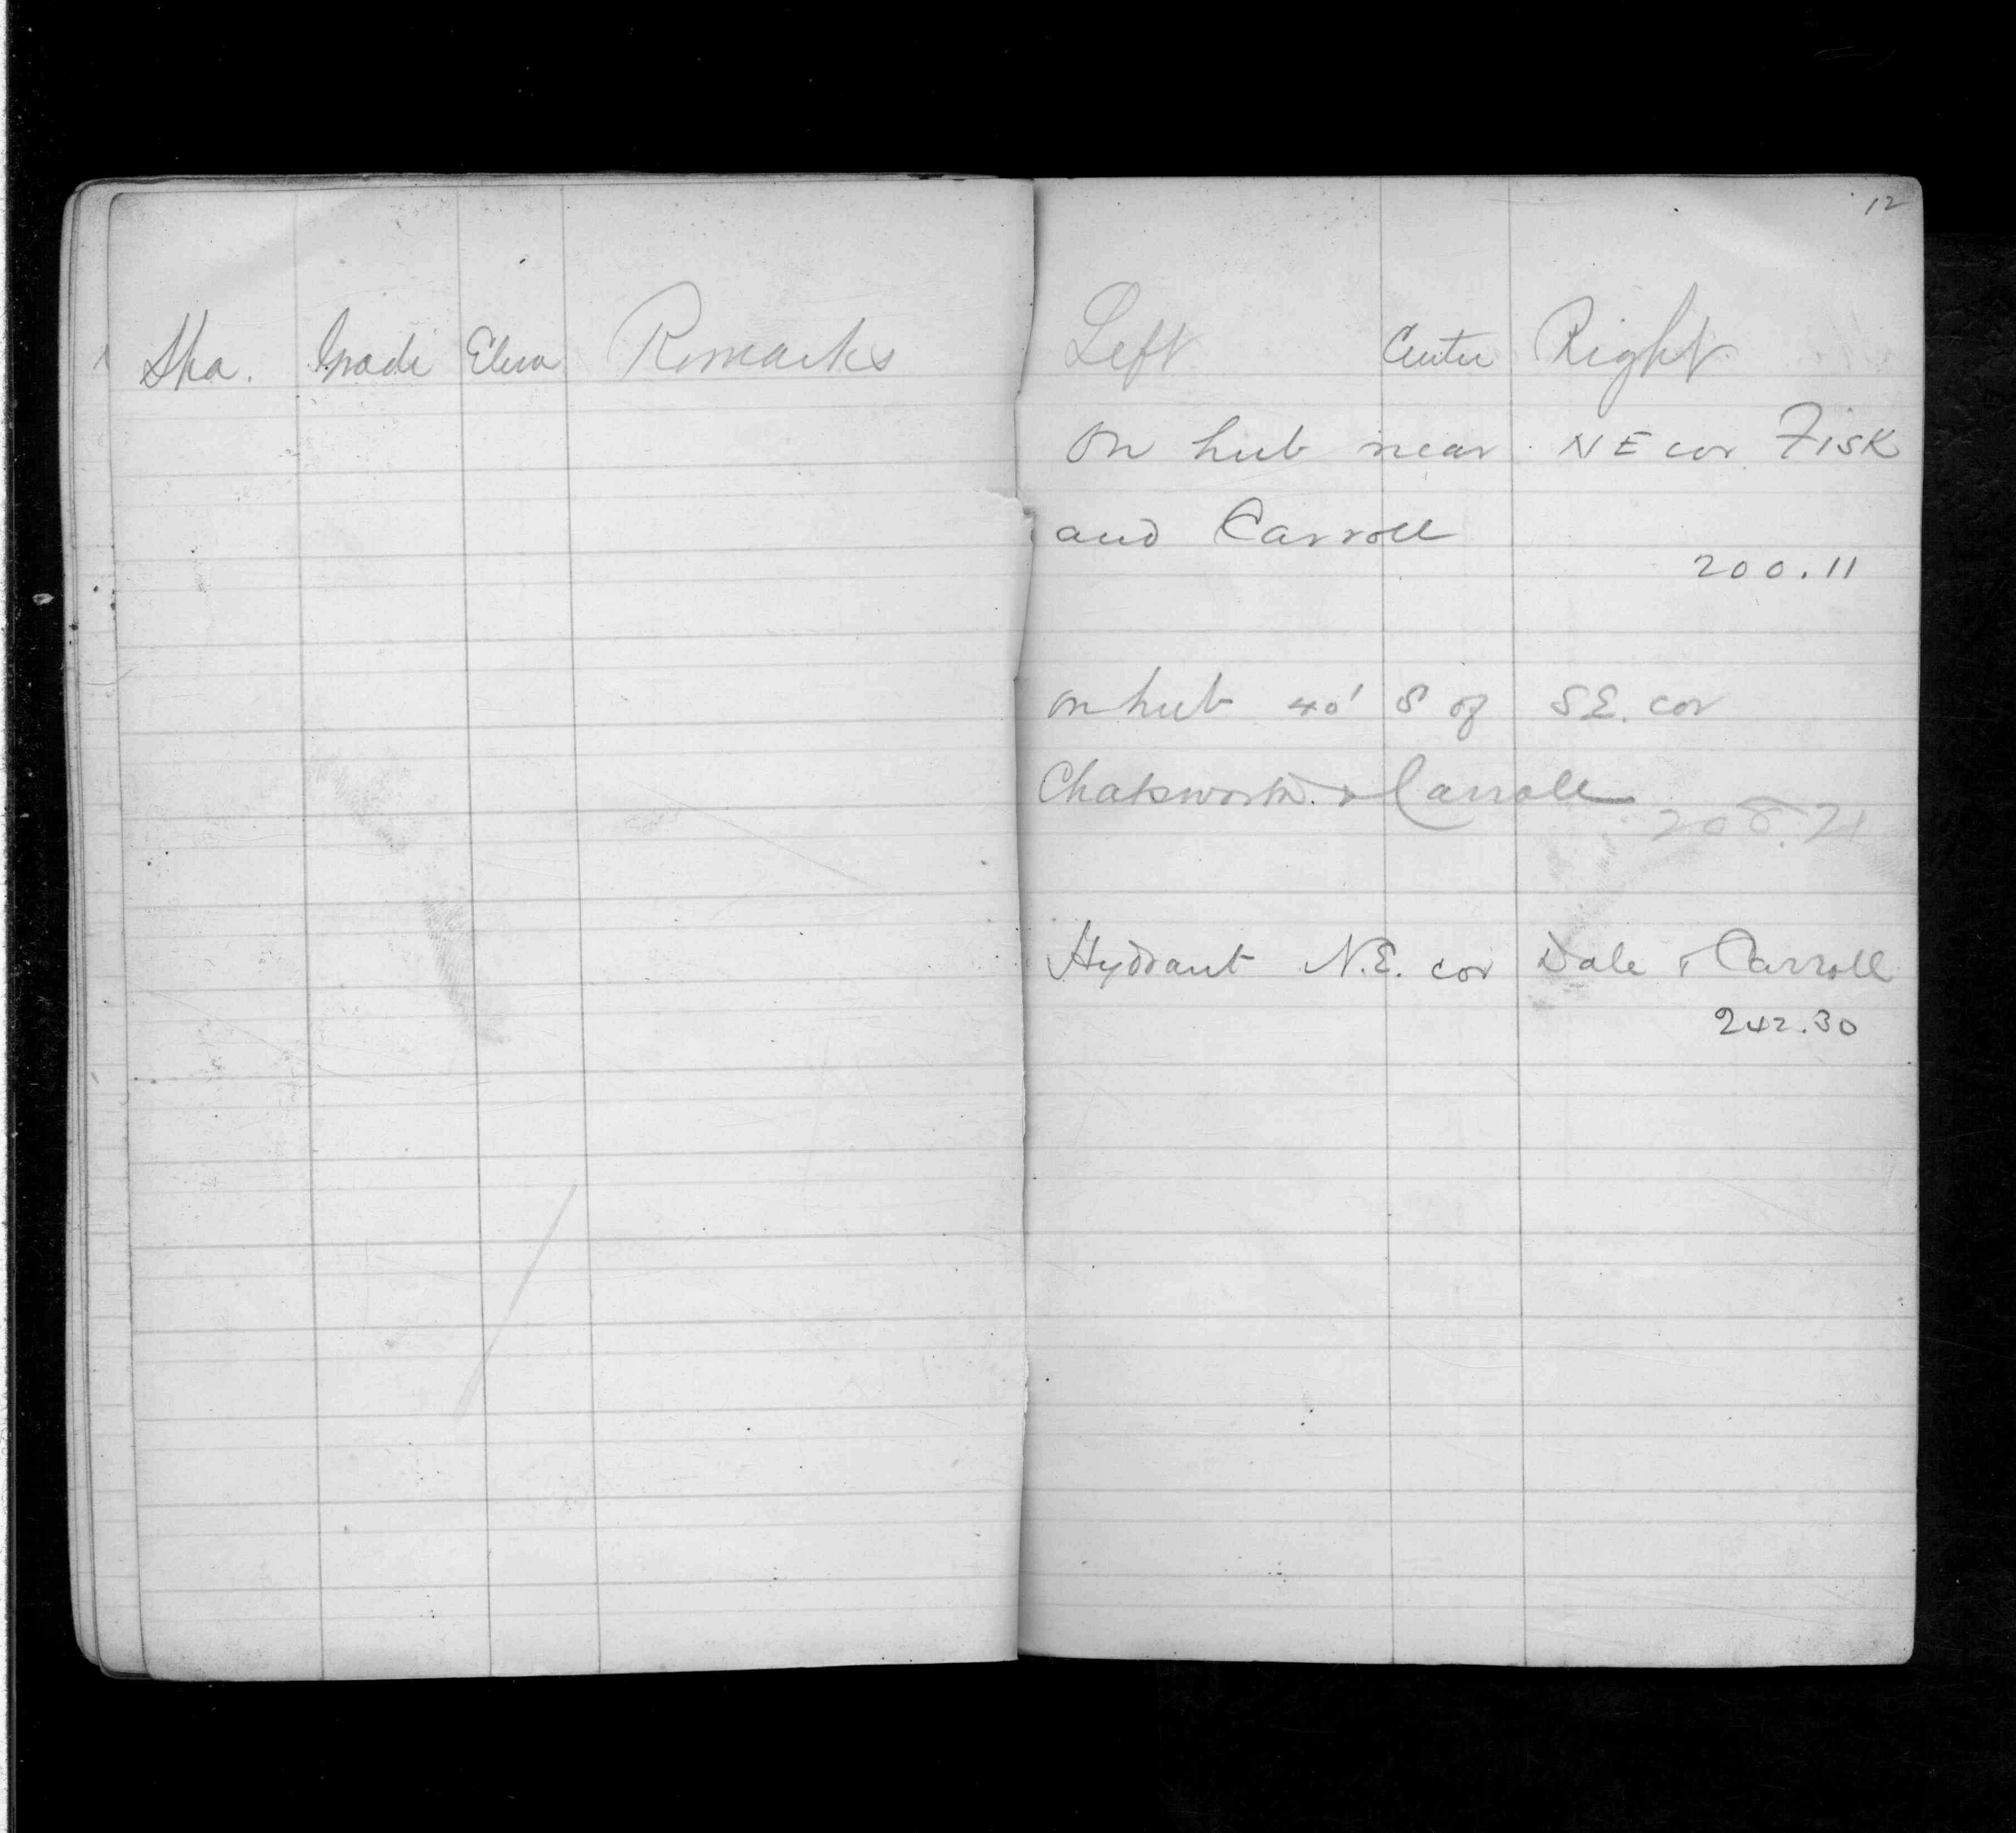 12
Sta. Grade Elева Remarks Left Center Right
On hub near NE cor Fisk
and Carroll
200.11
on hub 40' S of S.E. cor
Chatsworth & Carroll
208.71
Hydrant N.E. cor Dale & Carroll
242.30